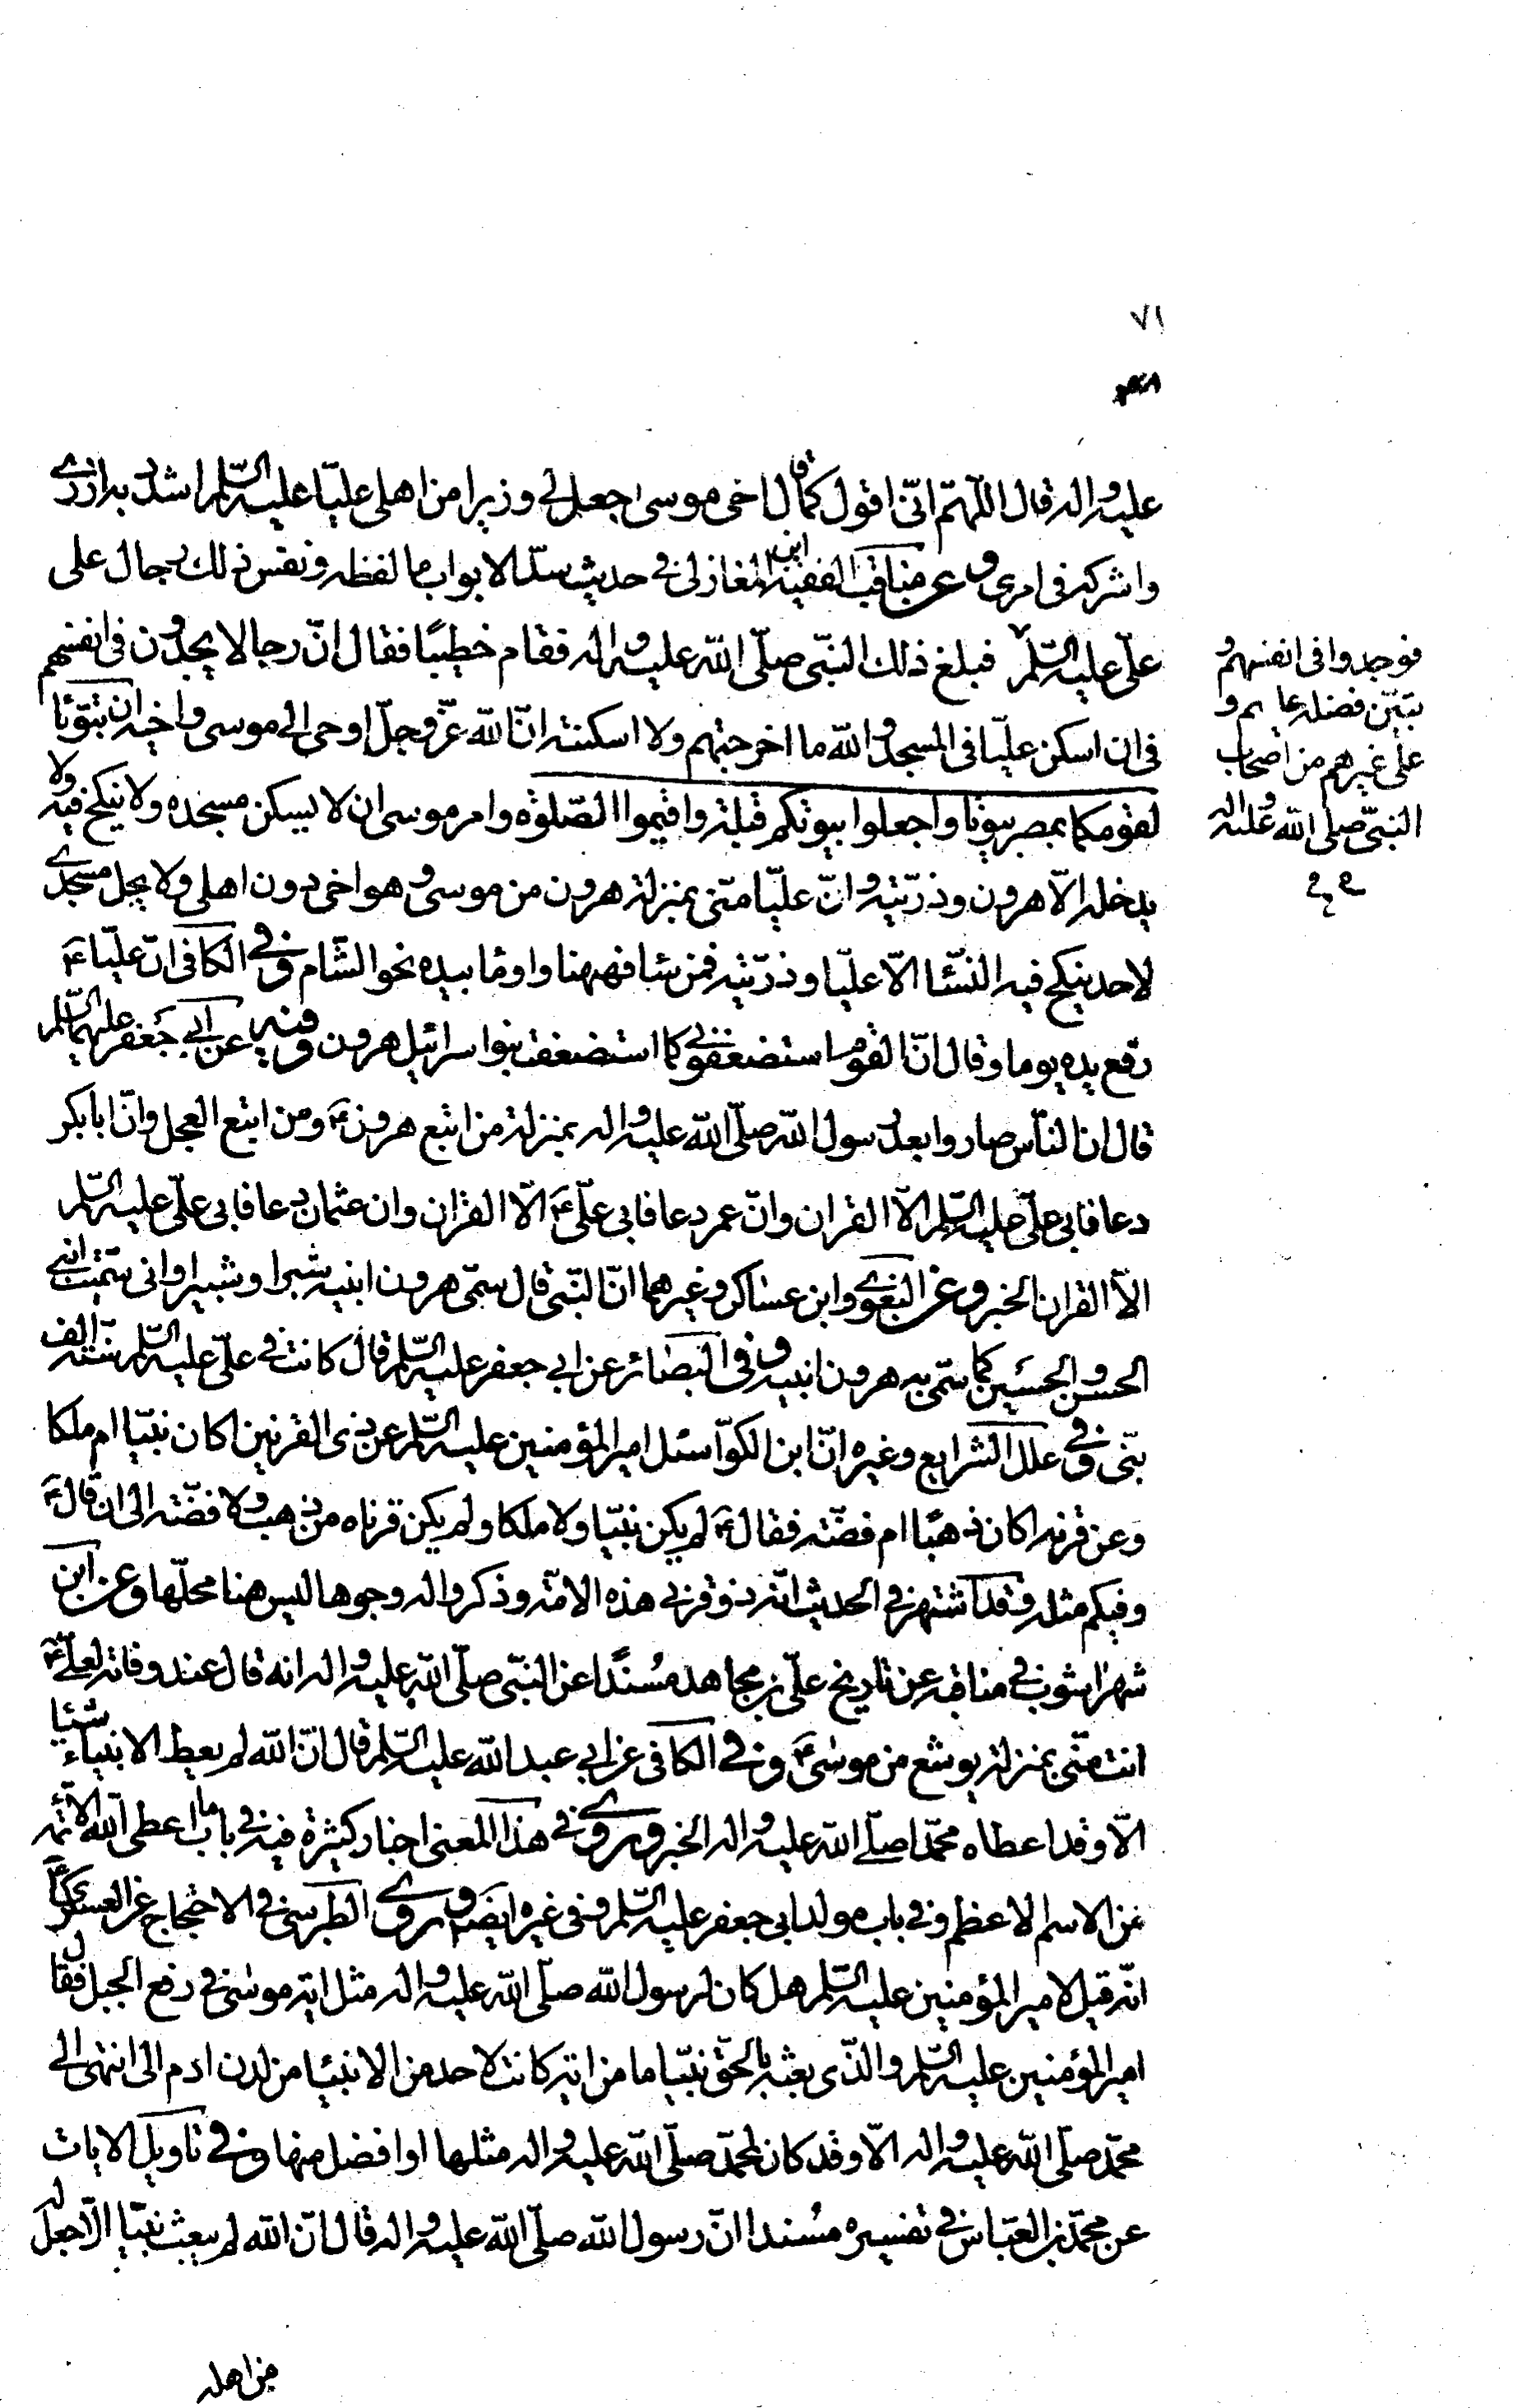 ٧١
عليه واله قال اللّهم انّى اقول كما قال اخى موسى اجعل لى وزيرا من اهلى عليّا عليه السّلم اشدد به ازرى
واشركه فى امرى وعن مناقب الفقيه ابن المغازلى فى حديث سدّ الابواب ما لفظه ونفس ذلك رجال على
علىّ عليه السّلم فبلغ ذلك النبّى صلّى اللّه عليه واله فقام خطيبًا فقال انّ رجالا يجدون فى انفسهم
فوجدوا فى انفسهم و
تبيّن فضله عليهم و
على غيرهم من اصحاب
النبّى صلى اللّه عليه واله
فى ان اسكن عليّا فى المسجد واللّه ما اخرجتهم ولا اسكنته انّ اللّه عزّ وجلّ اوحى الى موسى واخيه ان تبوّئا
لقومكما بمصر بيوتا واجعلوا بيوتكم قبلة واقيموا الصّلوة وامر موسى ان لا يسكن مسجده ولا ينكح فيه ولا
يدخله الّا هرون وذرّيته وانّ عليّا منّى بمنزلة هرون من موسى وهو اخى دون اهلى ولا يحل مسجدى
لاحد ينكح فيه النّسا الّا عليّا وذرّيته فمن شا فهيهنا واومٔا بيده نحو الشّام وفى الكافى انّ عليّا ع
رفع يده يوما وقال انّ القوم استضعفونى كما استضعفت بنو اسرائيل هرون وفيه عن ابى جعفر عليهما السّلم
قال ان النّاس صاروا بعد رسول اللّه صلّى اللّه عليه واله بمنزلة من اتبع هرون ع ومن اتبع العجل وانّ ابابكر
دعا فابى علىّ عليه السّلم الّا القران وانّ عمر دعا فابى علىّ ع الّا القران وان عثمان دعا فابى علىّ عليه السّلم
الّا القران الخبر وعن البغوى وابن عساكر وغيرهما انّ النّبى قال سمّى هرون ابنيه شبرا وشبيرا وانى سمّيت ابنى
الحسن والحسين كما سمّى به هرون ابنيه وفى البصائر عن ابى جعفر عليه السّلم قال كانت فى علىّ عليه السّلم سنّة الف
نبّى وفى علل الشرايع وغيره انّ ابن الكوّا سئل امير المؤمنين عليه السّلم عن ذى القرنين اكان نبيّا ام ملكا
وعن قرنه اكان ذهبًا ام فضّة فقال ع لم يكن نبيّا ولا ملكا ولم يكن قرناه من ذهب ولا فضّة الى ان قال ع
وفيكم مثله وقد اشتهر فى الحديث انّه ذو قرنى هذه الامّة وذكروا له وجوها ليس هنا محلّها وعن ابن
شهراشوب فى مناقبه عن تاريخ علىّ بن مجاهد مسندًا عن النبّى صلّى اللّه عليه واله انه قال عند وفاته لعلىّ ع
انت منّى بمنزلة يوشع من موسى ع وفى الكافى عن ابى عبد اللّه عليه السّلم قال انّ اللّه لم يعط الانبياء شيئا
الّا وقد اعطاه محمّدا صلّى اللّه عليه واله الخبر وروى فى هذا المعنى اخبار كثيرة فيه فى باب ما اعطى اللّه الائمّه
من الاسم الاعظم وفى باب مولد ابى جعفر عليه السّلم وفى غيره ايضا وروى الطبرسى فى الاحتجاج عن العسكرى ع
انّه قيل لامير المؤمنين عليه السّلم هل كان لرسول اللّه صلّى اللّه عليه واله مثل اية موسى فى رفع الجبل فقال
امير المؤمنين عليه السّلم والّذى بعثه بالحقّ نبيّا ما من اية كانت لاحد من الانبيا من لدن ادم الى انتهى الى
محمّد صلّى اللّه عليه واله الّا وقد كان لمحمّد صلّى اللّه عليه واله مثلها او افضل منها وفى تاويل الايات
عن محمّد بن العبّاس فى تفسيره مسندا انّ رسول اللّه صلّى اللّه عليه واله قال انّ اللّه لم يبعث نبيّا الّا جعل له
من اهله